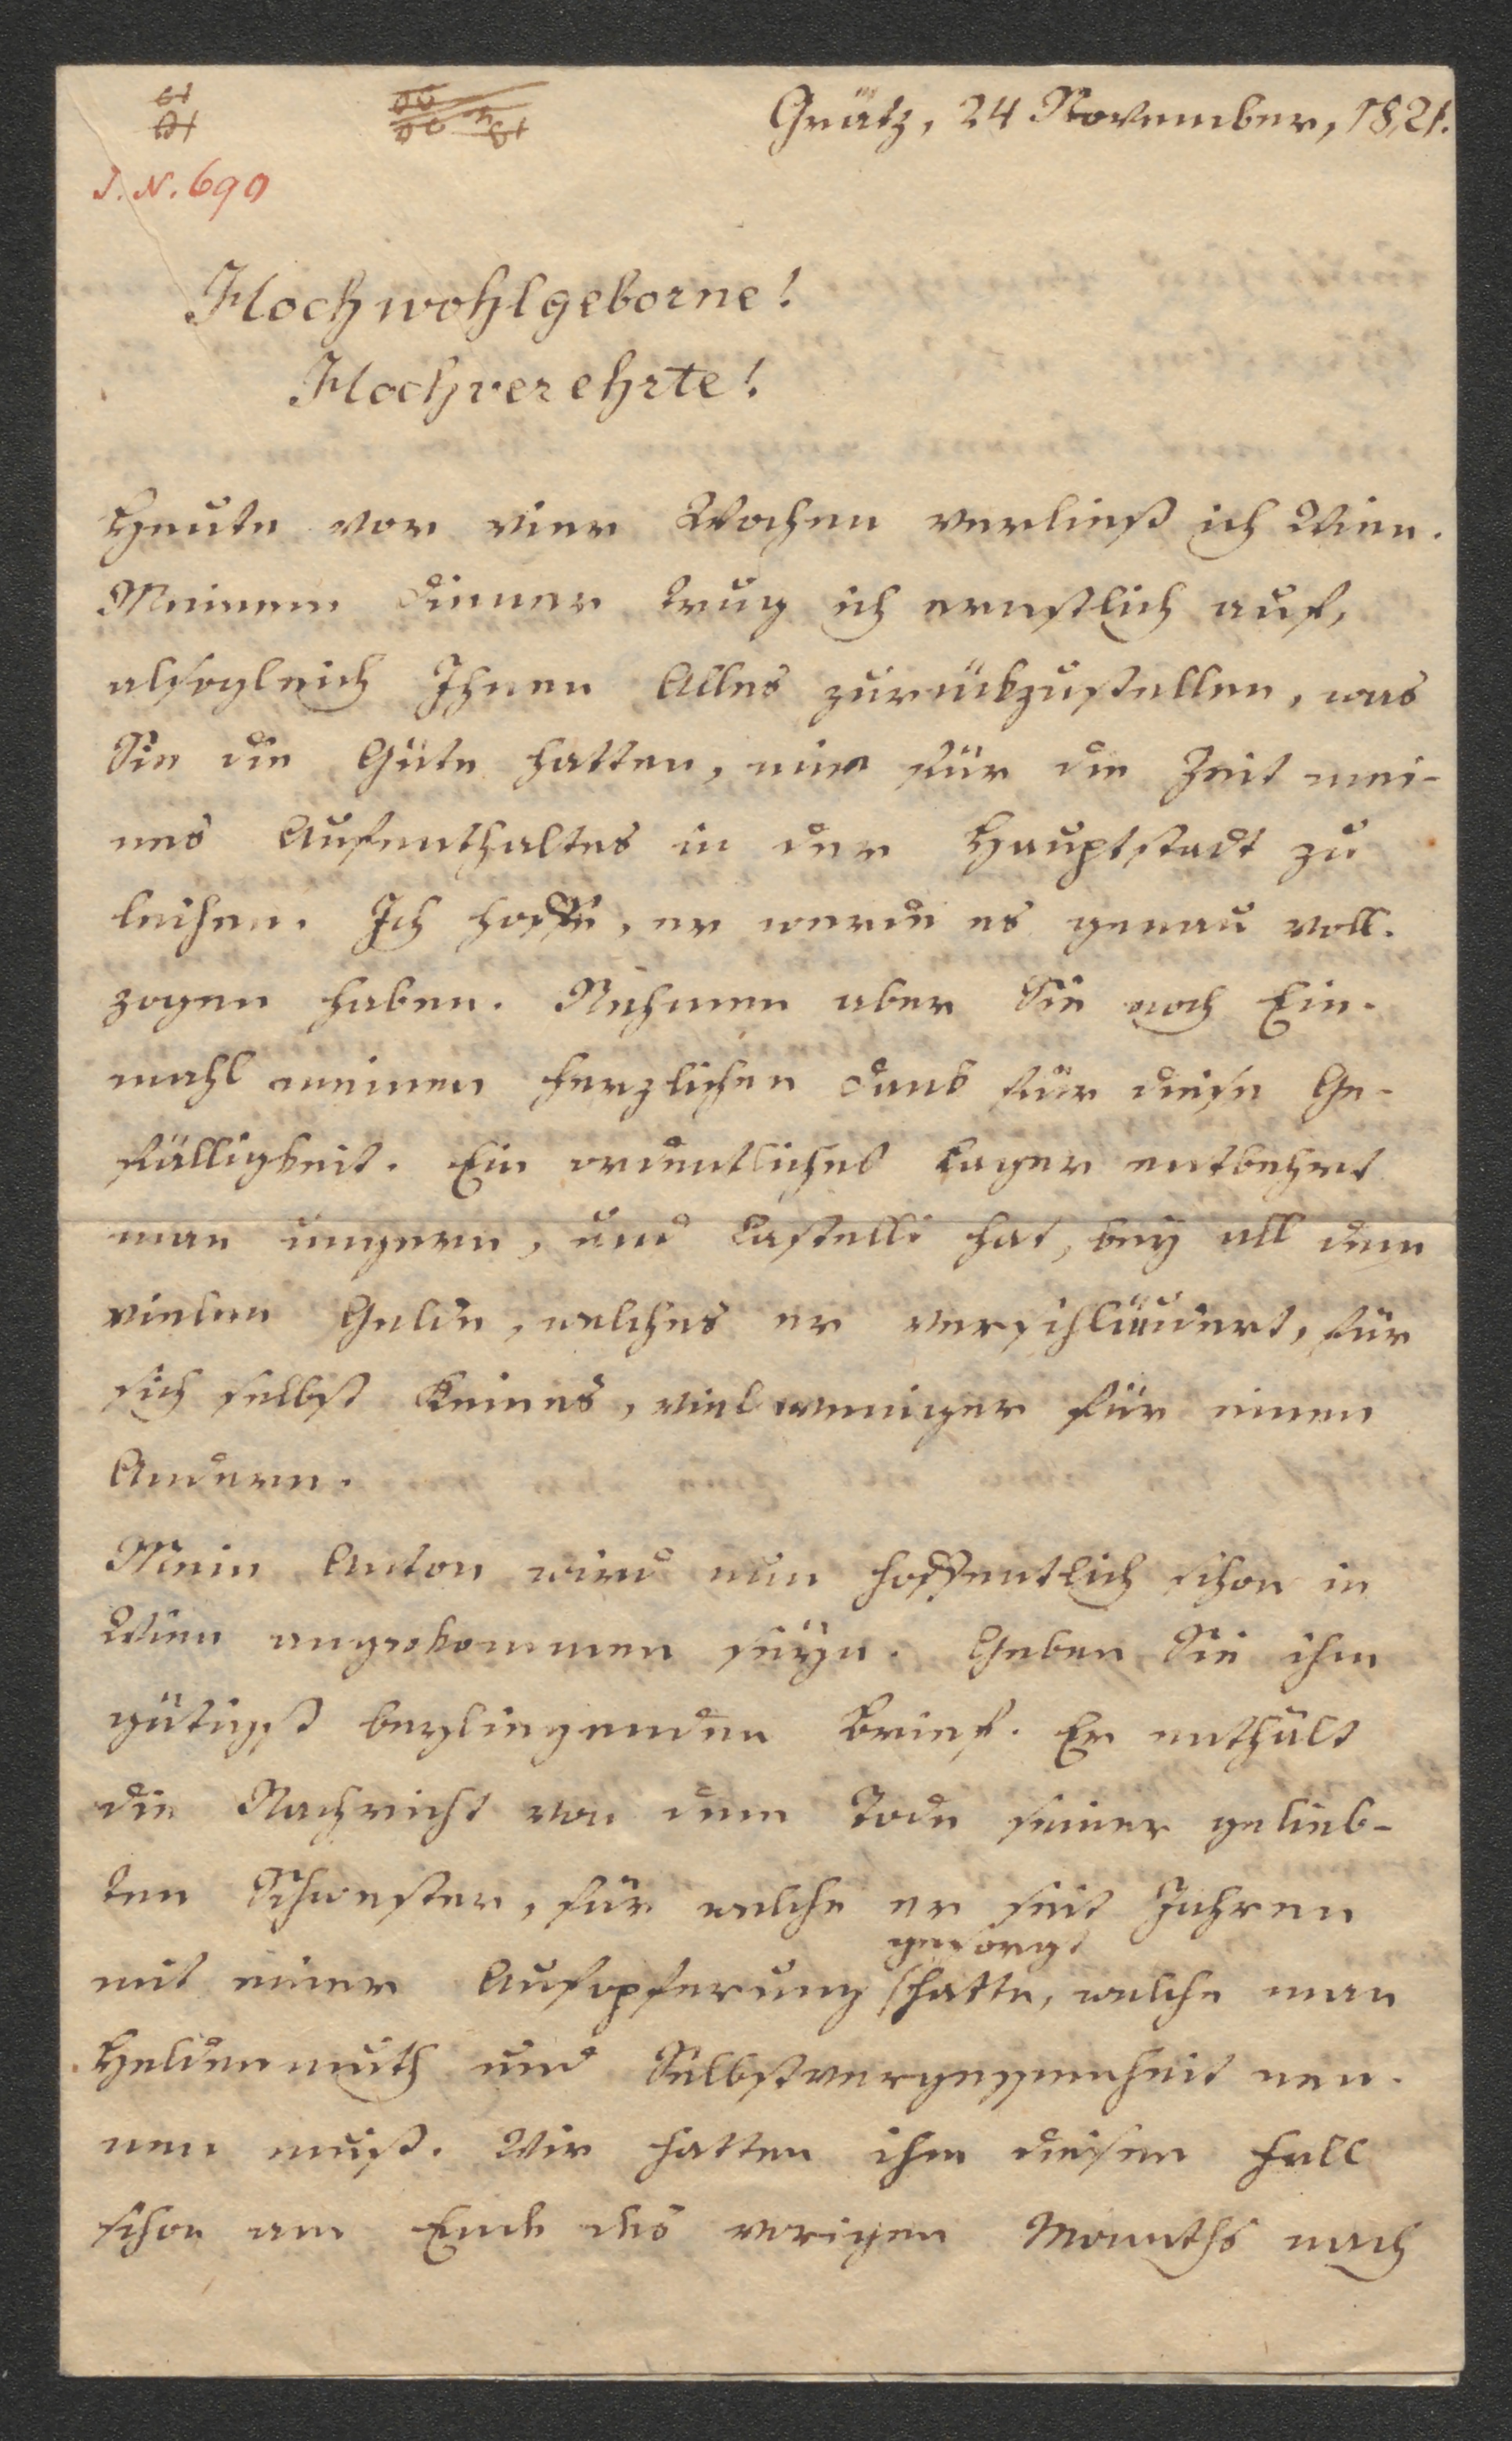 Grätz, 24 November, 1821.
J. N. 690
Hochwohlgeborne!
Hochverehrte!
Heute vor vier Wochen verließ ich Wien.
Meinem Diener trug ich ernstlich auf,
alsogleich Ihnen Alles zurükzustellen, was
Sie die Güte hatten, mir für die Zeit mei-
nes Aufenthaltes in der Hauptstadt zu
leihen. Ich hoffe, er werde es genau voll-
zogen haben. Nehmen aber Sie noch Ein-
mahl meinen herzlichen Dank für diese Ge-
fälligkeit. Ein ordentliches Lager entbehrt
man ungern, und Castelli hat, bey all dem
vielen Gelde, welches er verschleudert, für
sich selbst keines, viel weniger für einen
Andern.
Mein Anton wird nun hoffentlich schon in
Wien angekommen seyn. Geben Sie ihm
gütigst beyliegenden Brief. Er enthält
die Nachricht von dem Tode seiner gelieb-
ten Schwester, für welche er seit Jahren
gesorgt
mit einer Aufopferung hatte, welche man
Heldenmuth und Selbstvergessenheit nen-
nen muß. Wir hatten ihm diesen Fall
schon am Ende des vorigen Monaths nach